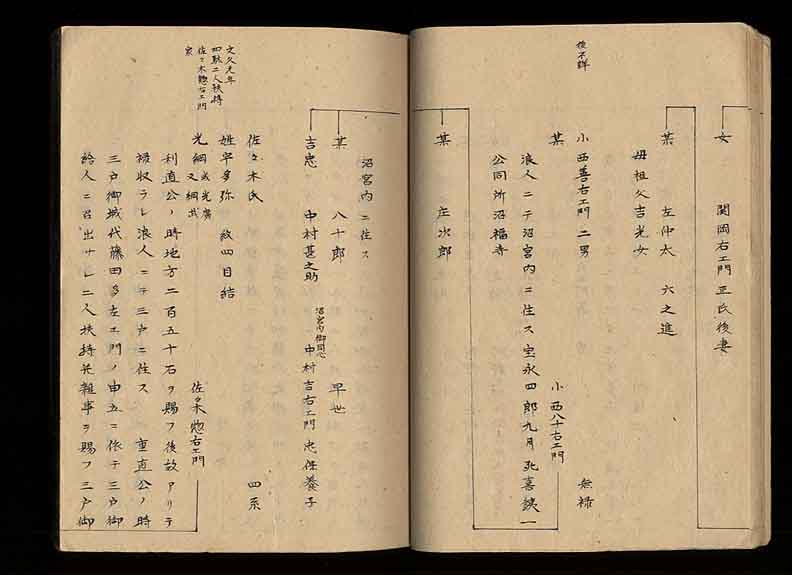 女　関岡右エ門正氏後妻
某　左仲太　六之進
母祖父吉光女
後不詳
小西善右エ門二男
某　小西八十右エ門　無禄
浪人ニテ沼宮内ニ住ス宝永四郎九月死喜鉄一
公同所沼福寺
某　庄次郎
沼宮内ニ住ス
某　八十郎　早世
吉忠　中村甚之助　沼宮内御同心　中村吉右エ門忠保養子
文久元年
四駄二人扶持
佐々木惣右エ門
家
佐々木氏　四系
姓宇多弥　紋四目結
光綱　或光広　又綱武　佐々木惣右エ門
利直公ノ時地方二百五十石ヲ賜フ後故アリテ
禄収ラレ浪人ニテ三戸ニ住ス　重直公ノ時
三戸御城代藤田多左エ門ノ申立ニ依テ三戸御
給人ニ召出サレ二人扶持並雑事ヲ賜フ三戸御